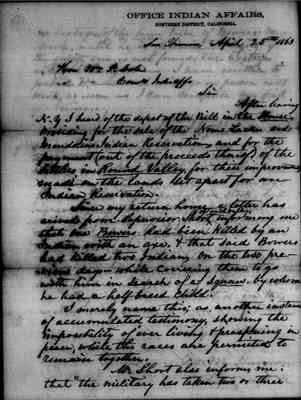 OFFICE INDIAN AFFAIRS,
NORTHERN DISTRICT, CALIFORNIA.
San Franco April 25th 1863
Hon Wm P. Dole
Comr Ind Affs
Sir
After leaving
N.Y I heard of the defeat of the Bill in the House
Providing for the sale of the Nome Lacken and
Mendocino Indian Reservations, and for the
payment (out of the proceeds thereof) of the
settlers in Round Valley for their improvements
made on the lands set apart for an
Indian Reservation.
Since my return home a letter has
arrived from Supervisor Short informing me
that one Bowers had been killed by an
Indian with an axe, & that said Bowers
had killed two Indians on the two pre-
vious days while coercing them to go
with him in search of a Squaw, by whom
he had a half breed child.
I merely name this, as another instance
of accumulated testimony, showing the
impossibility of ever living & prospering in
peace, while the races are permitted to
remain together.
Mr Short also informs me:
that "the military has taken two or three